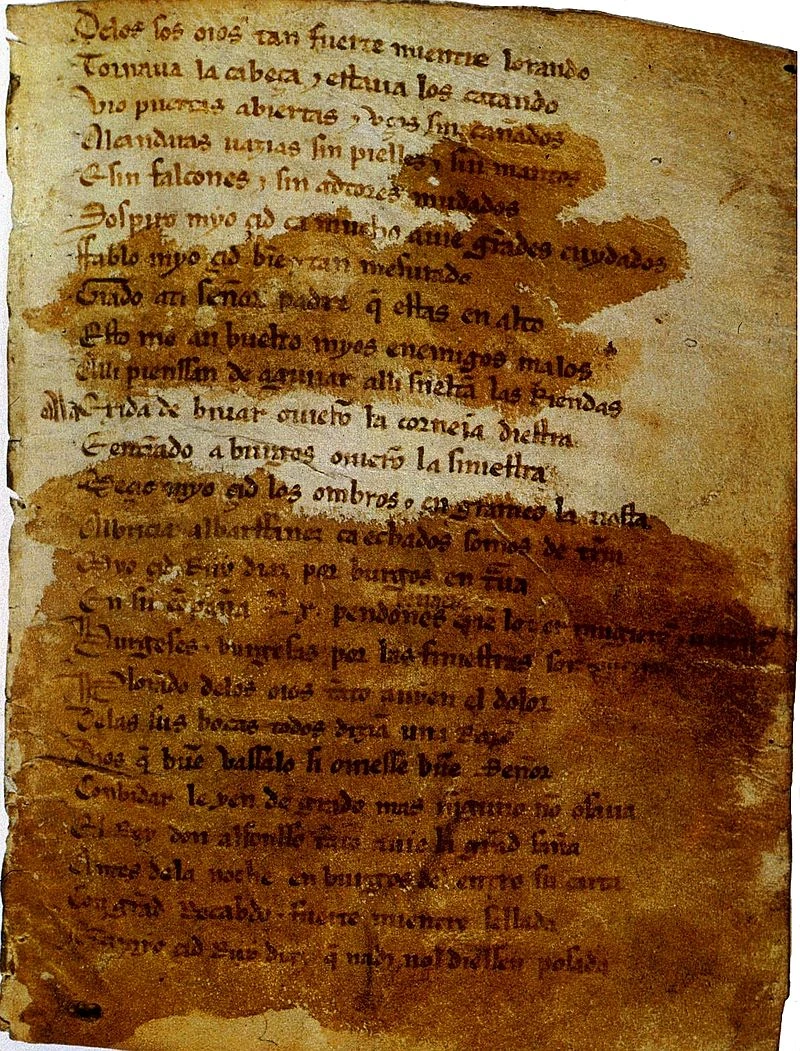 Delos sos oios tan fuerte mientre lorando
Tornaua la cabeça ⁊ estaua los catando
Vio puertas abiertas ⁊ vços sin cañados
Alcandaras uazias sin pielles ⁊ sin mantos
E sin falcones ⁊ sin adtores mudados
Sospiro myo çid ca mucho auie grãdes cuydados
Ffablo myo çid biẽ ⁊ tan mesurado
Grado ati señor padre q̃ estas en alto
Esto me an buelto myos enemigos malos
Alli pienssan de aguiiar alli sueltã las Riendas
Ala Exida de biuar ouierõ la corneia diestra
E entrãdo a burgos ouierõ la siniestra
Meçio myo çid los ombros ⁊ en grameo la tiesta
Albricia albarffanez ca echados somos de trr̃a
Myo çid Ruy diaz por burgos en traua
En su cõpaña Lx pendones
Burgeses ⁊ burgesas por las finiestras son
Plorãdo delos oios tãto auyẽn el dolor
Delas sus bocas todos dizian una Razõ
Dios q̃ buẽ vassalo si ouiesse buẽ Señor
Conbidar le yen de grado mas nĩguno nõ osaua
El Rey don alfonsso tãto auie la grãd saña
Antes dela noche en burgos del entro su carta
Con grãd Recabdo ⁊ fuerte mientre sellada
Ruy diaz q̃ nadi nol diessen posada